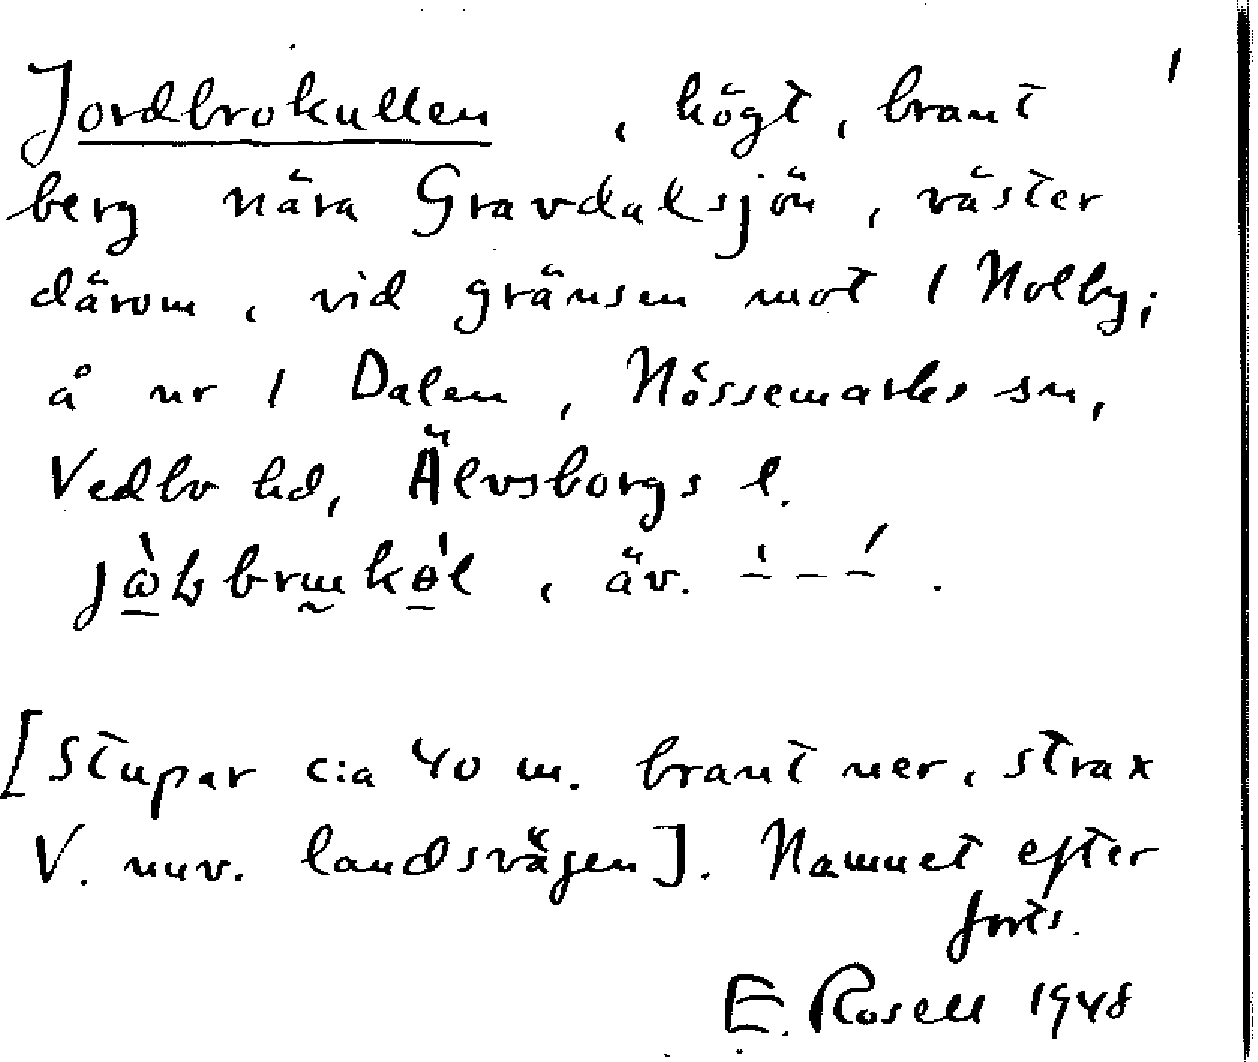 Jordbrokullen, högt, brant 1
berg nära Gravdalsjön, väster
därom, vid gränsen mot 1 Nolby;
å nr 1 Dalen, Nössemarks sn,
Vedbo hd, Älvsborgs l.
, äv.
[Stupar c:a 40 m. brant ner, strax
V. nuv. landsvägen]. Namnet efter
forts.
E. Rosell 1948